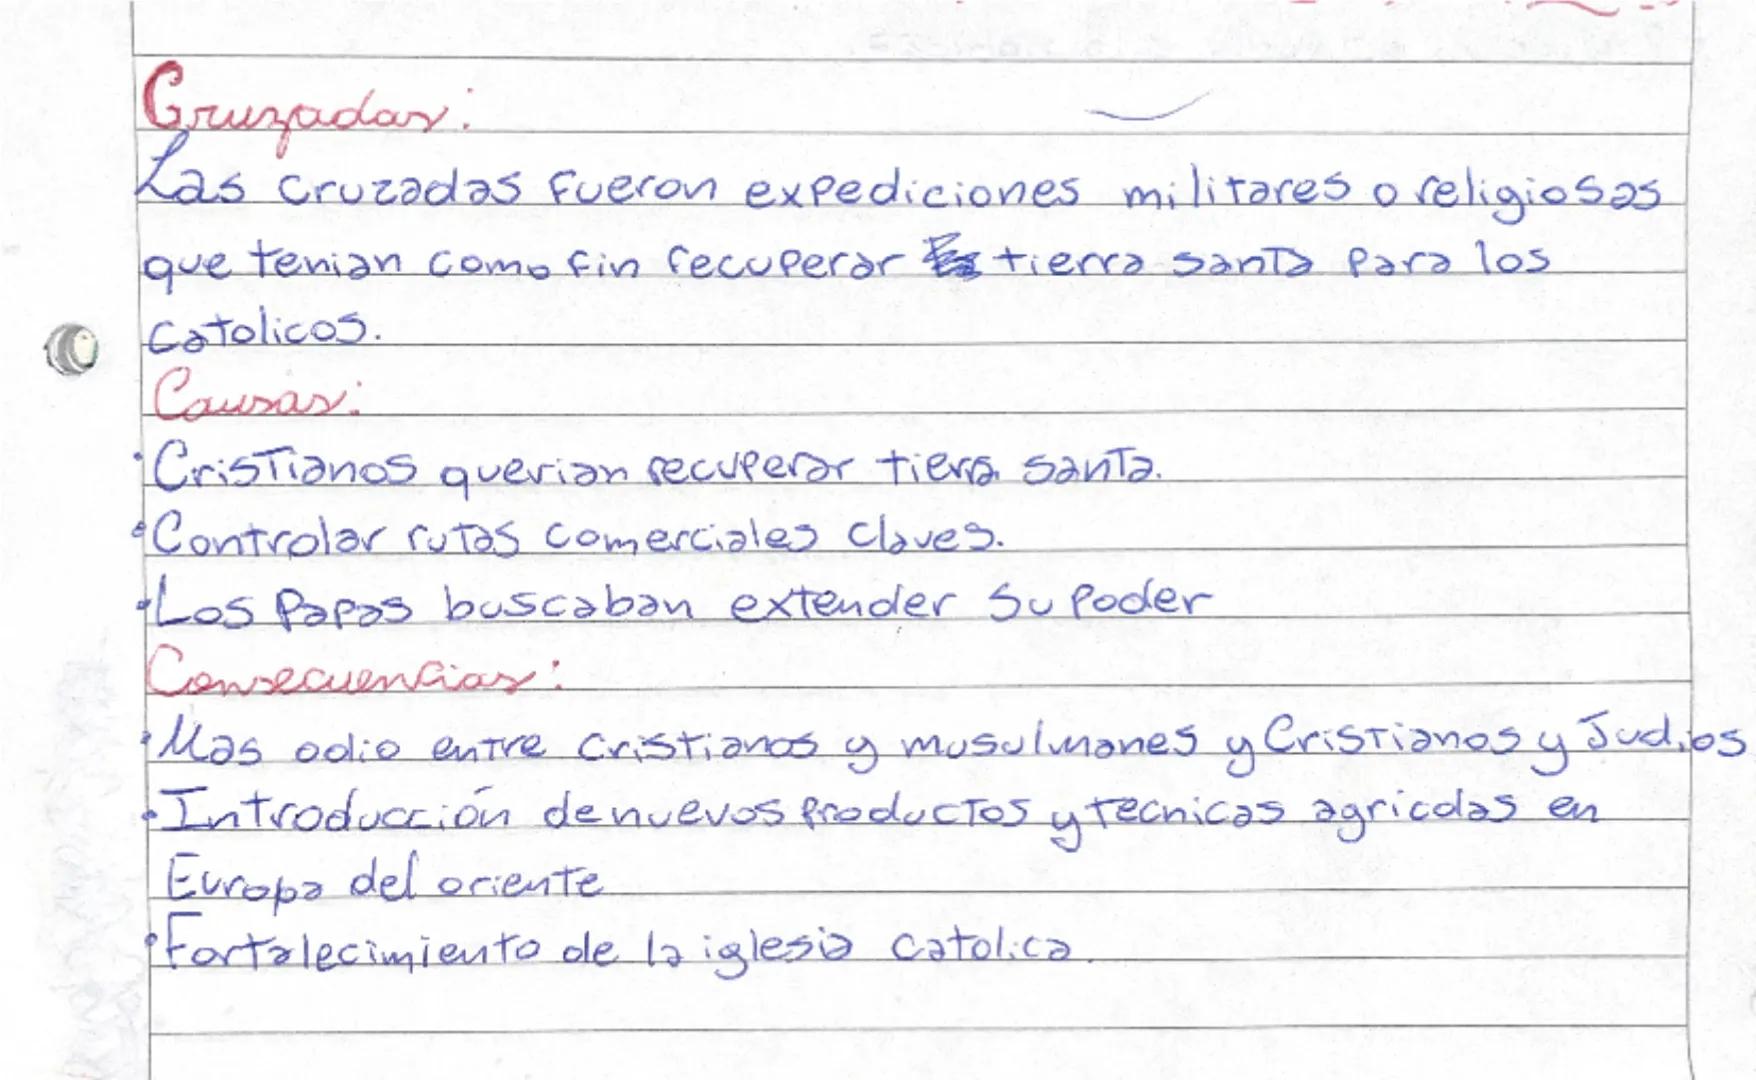 Cruzadas:
Las cruzadas fueron expediciones militares o religiosas
que tenian como fin recuperar tierra santa para los
catolicos.
Causas:
• Cristianos querian recuperar tierra santa.
• Controlar rutas comerciales claves.
• Los Papas buscaban extender su poder
Consecuencias:
• Mas odio entre cristianos y musulmanes y Cristianos y Judios
• Introducción de nuevos productos y tecnicas agricolas en
Europa del oriente
• Fortalecimiento de la iglesia catolica.